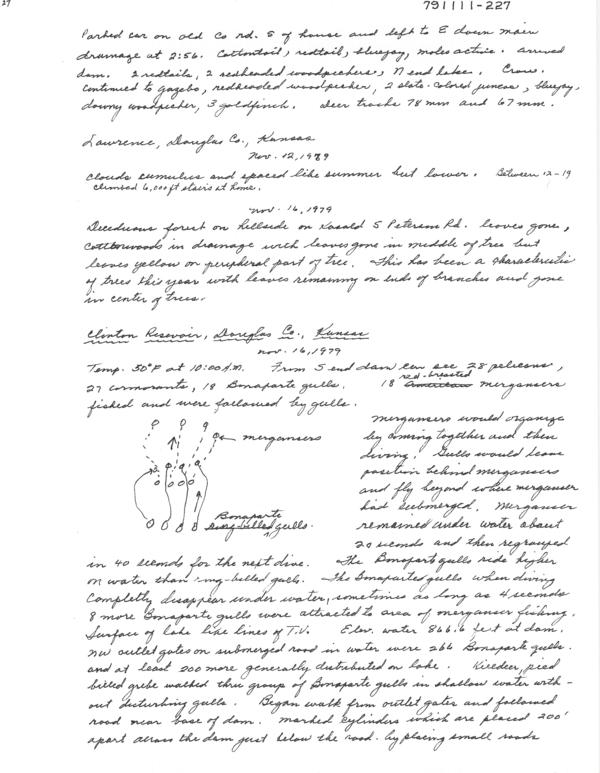 27
791111-227
Parked car on old Co rd. S of house and left to E down main
drainage at 2:56. Cottontail, redtail, bluejay, moles active. Arrived
dam. 2 redtails, 2 redheaded woodpeckers, N end lake. Crow.
Continued to gazebo, redheaded woodpecker, 2 slate-colored juncos, bluejay,
downy woodpecker, 3 goldfinch. Deer tracks 78 mm and 67 mm.
Lawrence, Douglas Co., Kansas
Nov. 12, 1979
Clouds cumulus and spaced like summer but lower. Between 12-19
climbed 6,000 ft stairs at home.
Nov. 16, 1979
Deciduous forest on hillside on Kasold S Peterson Rd. leaves gone,
Cottonwoods in drainage with leaves gone in middle of tree but
leaves yellow on peripheral part of tree. This has been a characteristic
of trees this year with leaves remaining on ends of branches and gone
in center of trees.
Clinton Resevoir, Douglas Co., Kansas
Nov. 16, 1979
Temp. 50°F at 10:00 A.M. From S end dam can see 28 pelicans,
27 cormorants, 18 Bonaparte gulls. 18 red-breasted American mergansers
fished and were followed by gulls.
mergansers
Bonaparte
ring-billed gulls.
Mergansers would organize
by coming together and then
diving. Gulls would leave
position behind mergansers
and fly beyond where merganser
had submerged. Merganser
remained under water about
20 seconds and then regrouped
in 40 seconds for the next dive. The Bonaparte gulls ride higher
on water than ring-billed gulls. The Bonaparted gulls when diving
completly disappear under water, sometimes as long as 4 seconds
8 more Bonaparte gulls were attracted to area of merganser fishing.
Surface of lake like lines of T.V. Elev. water 866.6 feet at dam.
NW outlet gates on submerged road in water were 266 Bonaparte gulls.
and at least 200 more generally distributed on lake. Killdeer, pied
billed grebe walked thru group of Bonaparte gulls in shallow water with-
out disturbing gulls. Began walk from outlet gates and followed
road near base of dam. Marked cylinders which are placed 200'
apart across the dam just below the road. by placing small roads